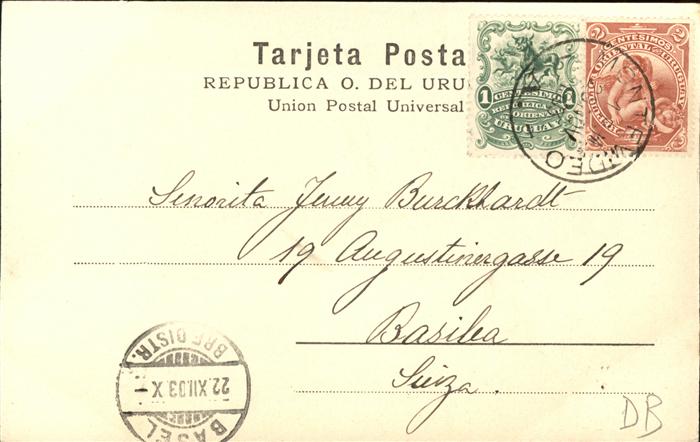 Tarjeta Posta
REPUBLICA O. DEL URU
Union Postal Universal
1 CENTESIMO 1
REPUBLICA
ORIENTAL
URUGUAY
2 CENTESIMOS 2
REPUBLICA ORIENTAL DEL URUGUAY
MONTEVIDEO
Senorita Jenny Burckhardt
19 Augustinergasse 19
Basilea
Suiza.
BASEL
22.XII.03.X
BRF. DISTR.
DB